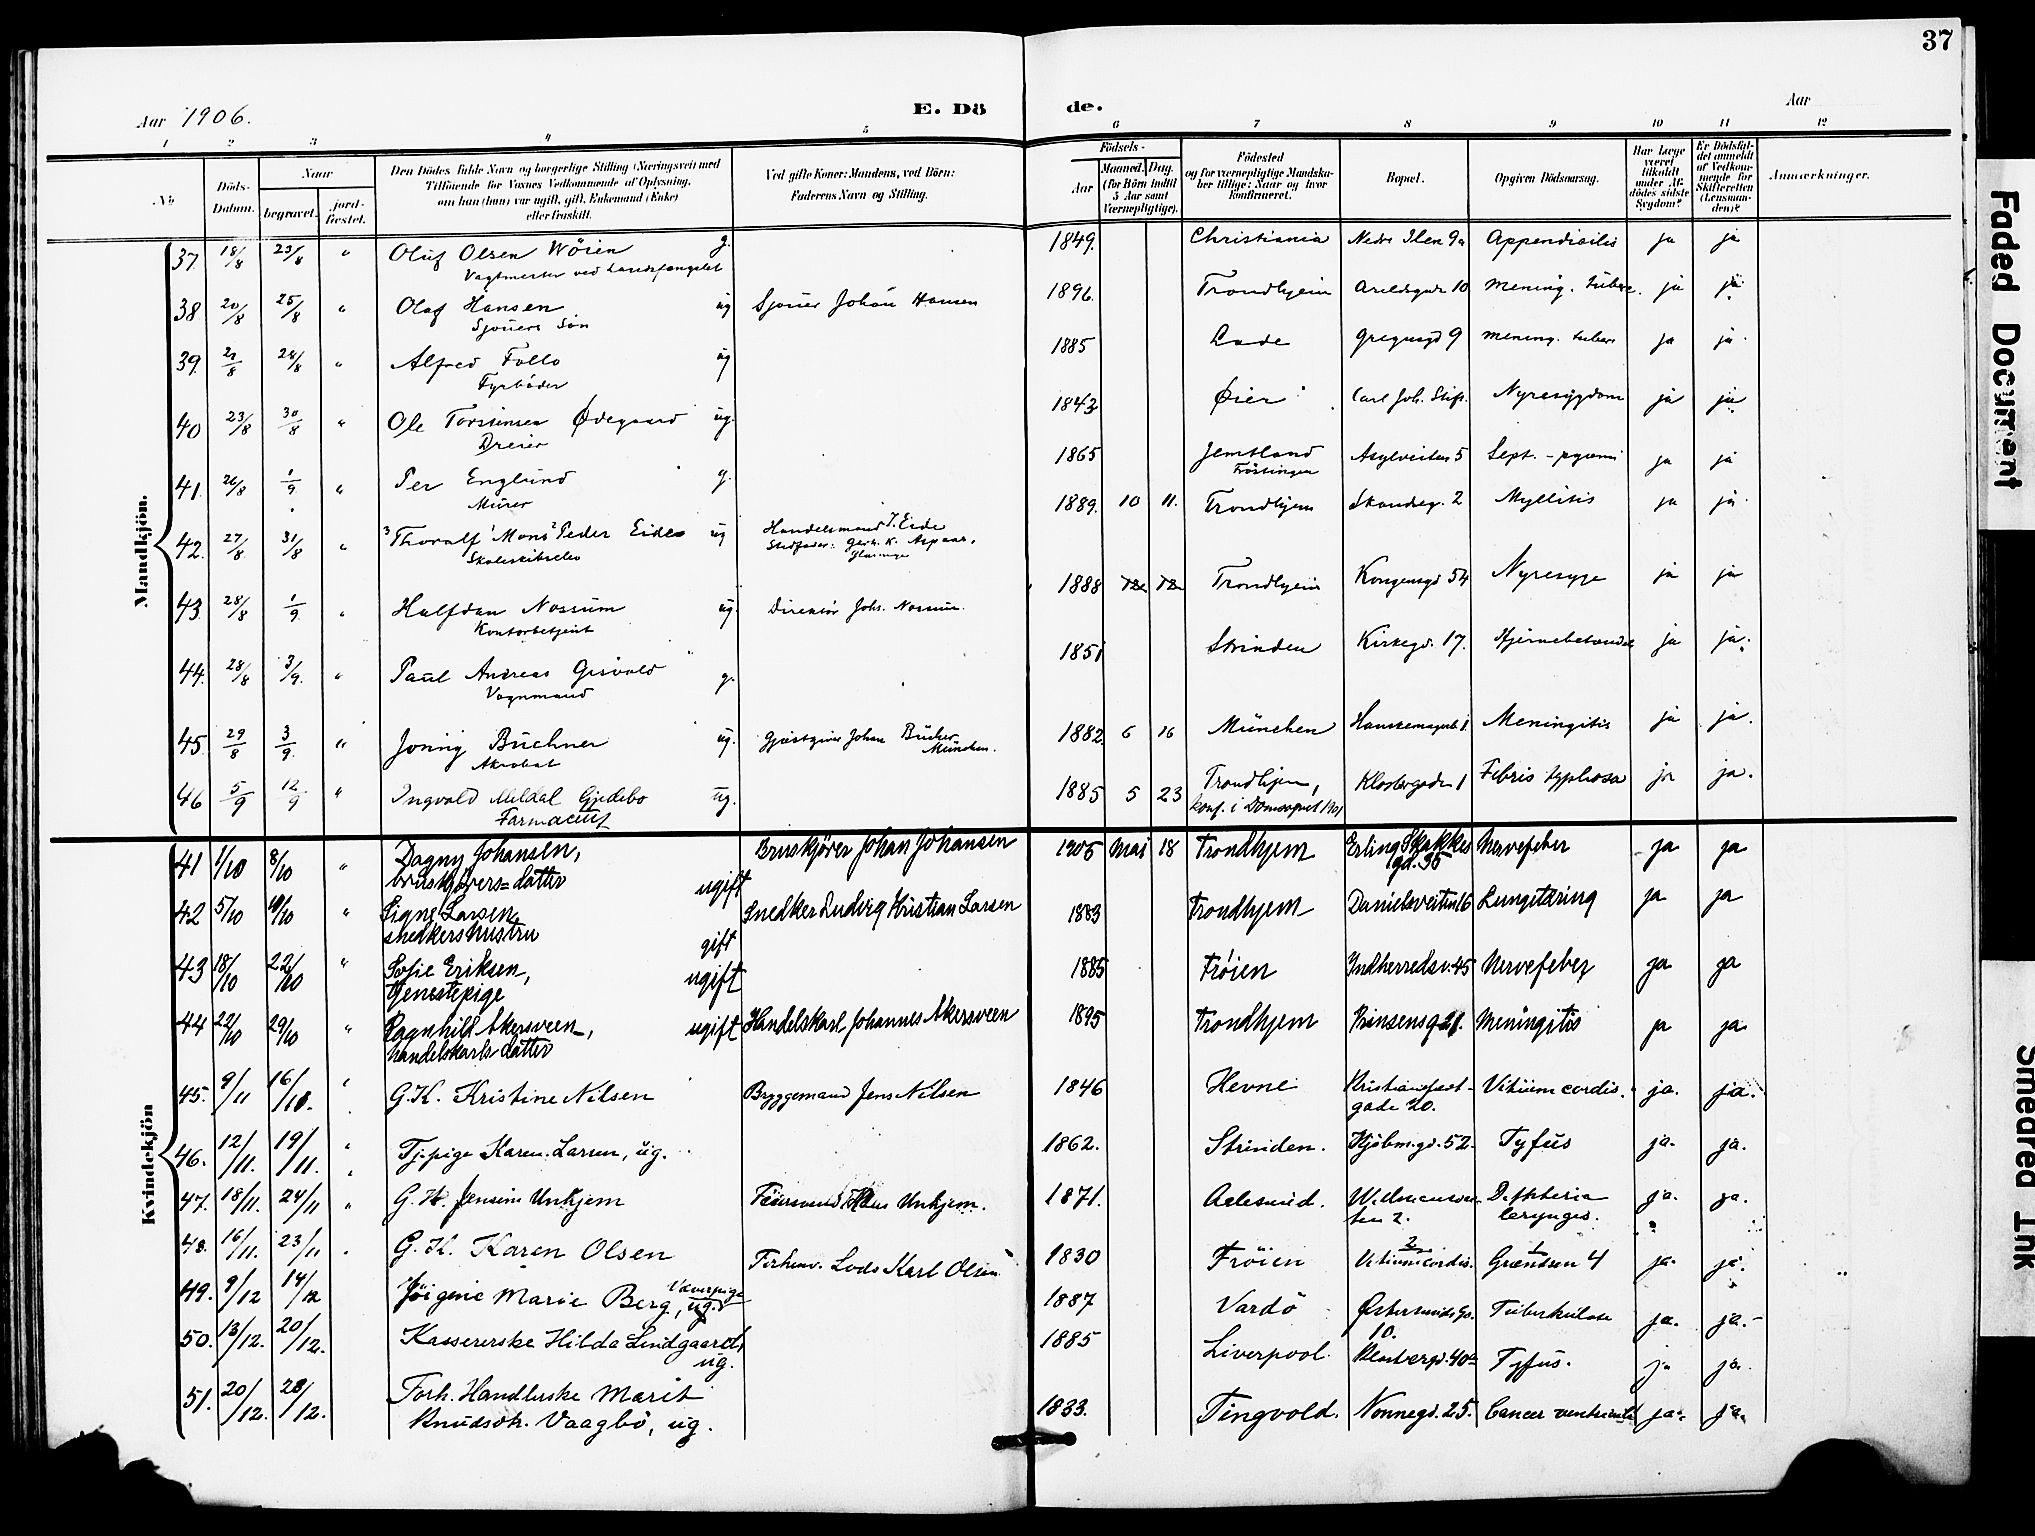 37
Aar 1906.
E. Dö de.
Aar
1 2 3 4 5 6 7 8 9 10 11 12
No
Döds-
Datum.
Naar
begravet.
jord-
fæstet.
Den Dödes fulde Navn og borgerlige Stilling (Næringsvei) med
Tilföiende for Voxnes Vedkommende af Oplysning,
om han (hun) var ugift, gift, Enkemand (Enke)
eller fraskilt.
Ved gifte Koner: Mandens, ved Börn:
Faderens Navn og Stilling.
Födsels-
Aar
Maaned. Dag.
(for Börn indtil
5 Aar samt
Værnepligtige).
Födested
og for værnepligtige Mandska-
ber tillige: Naar og hvor
konfirmeret.
Bopæl.
Opgiven Dödsaarsag.
Har Læge
været
tilkaldt
under Af-
dödes sidste
Sygdom?
Er Dödsfal-
det anmeldt
af Vedkom-
mende for
Skifteretten
(Lensman-
den)?
Anmærkninger.
Mandkjön.
37. 18/8 23/8 " Oluf Olsen Wöien g. 1849. Christiania Nedre Ilen 9a Appendicitis ja ja
Vagtmester ved Landsfængslet
38 20/8 25/8 " Olaf Hansen ug Sjouer Johan Hansen 1896. Trondhjem 10 Mening. tuberc. ja ja
Sjouers Sön
39. 21/8 28/8 " Alfred Follo ug 1885 Lade 9 mening. tuberc ja ja
Fyrböder
40 23/8 30/8 " Ole Torstensen Ødegaard ug. 1843 Øier Carl Joh. Stift. Nyresygdom ja ja
Dreier
41. 26/8 1/9 " Per Englund g. 1865 Jemtland Asylveiten 5 Sept.-pyæmi ja ja
Murer
42. 27/8 31/8 " 3 Thoralf 1 Mons 2 Peder Eide ug Handelsmand T. Eide 1889. 10 11. Trondhjem 2 Myelitis ja ja
Stedfader:
43. 28/8 1/9 " Halfdan Nossum ug. Direktör Johs. Nossum. 1888 Trondhjem Kongensgd 54 Nyresyge ja ja
Kontorbetjent
44. 28/8 3/9. " Paul Andreas g. 1851 Strinden Kirkegd. 17. ja ja.
Vognmand
45. 29/8 3/9. " Büchner ug. Gjæstgiver Johan 1882. 6 16 München Meningitis ja ja.
Akrobat München.
46 5/9 12/9 " Ingvald Meldal Gjedebo ug. 1885 5 23 Trondhjem, Klostergaden 1 Febris typhosa ja ja.
Farmaceut konf. i 1901
Kvindekjön
41 1/10 8/10 " Dagny Johansen, Bruskjører Johan Johansen 1905 Mai 18 Trondhjem Erling Skakkes Nervefeber ja ja
bruskjørers=datter ugift gd. 35
42 5/10 10/10 " Signe Larsen, Snedker Ludvig Kristian Larsen 1883 Trondhjem Danielsveiten 6 Lungetæring ja ja
snedkershustru gift
43 18/10 22/10 " Sofie Eriksen, ugift 1885 Frøien Indherredsv. 45 Nervefeber ja ja
tjenestepige
44 22/10 29/10 " Ragnhild Akersveen, ugift Handelskarl Johannes Akersveen 1895 Trondhjem Prinsensg. 21. Meningitis ja ja
handelskarls datter
45. 9/11 16/10. " G.K. Kristine Nilsen Bryggemand Jens Nilsen 1846 Hevne Kristiansfeldt- Vitium cordis. ja. ja.
gade 20.
46. 12/11. 19/11. " Tj.pige Karen Larsen, ug. 1862. Strinden. Kjöbm.gd. 52. Tyfus ja. ja.
47. 18/11. 24/11 " G.K. Jensine Unhjem Hans Unhjem. 1871. Aalesund. Difhteria ja. ja.
ten 2. laryngis.
48. 16/11. 23/11 " G.K. Karen Olsen Forhenv. Lods Karl Olsen 1830 Fröien 2 Vitium cordis. 1 Grændsen 4 ja. ja.
49. 9/12 14/12 Jörgine Marie Berg, Væverpige ug. 1887 Vardö Östersundsgd. Tuberkulose ja. ja.
10.
50. 13/12. 20/12. Kassererske Hilda Lindgaard, 1885 Liverpool. Klostergd. 40a Tyfus. ja ja.
ug.
51. 20/12. 28/12. Forh. Handlerske Marit 1833. Tingvold. Nonnegd. 25. Cancer ventriculi ja. ja.
Knudsdtr. Vaagbö, ug.
Faded Document
Smeared Ink